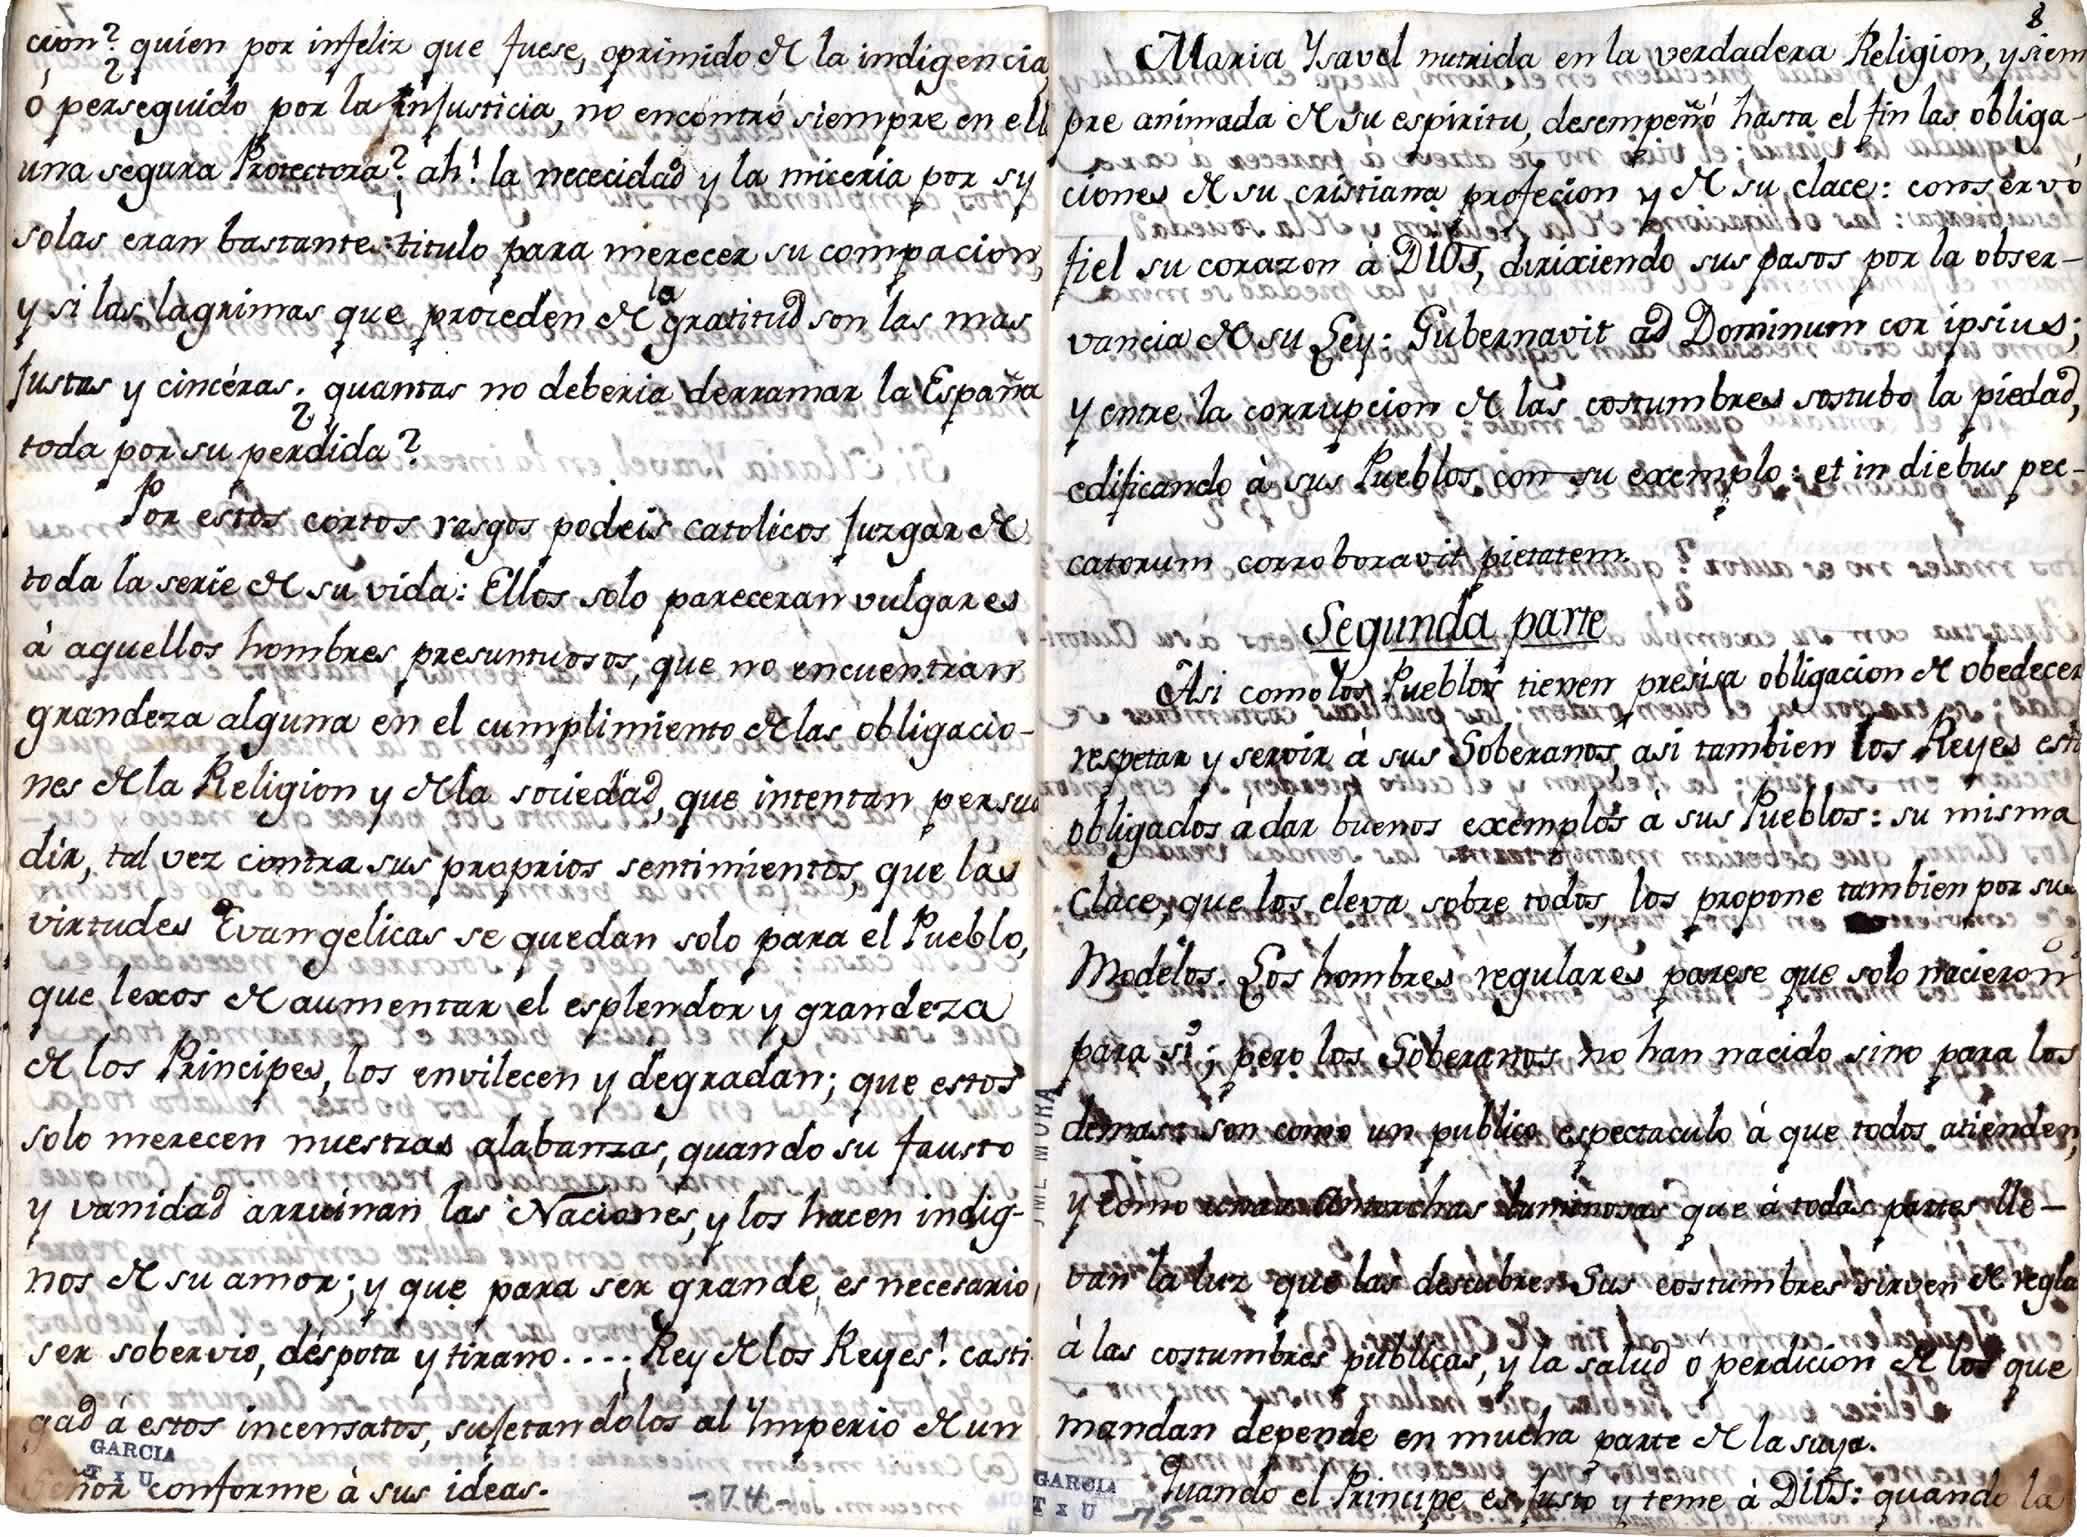 cion? quien por infeliz que fuese, oprimido de la indigencia,
ó perseguido por la injusticia, no encontró siempre en ell
una segura Protectora? ah! la nececidad y la miceria por sy
solas eran bastante titulo para merecer su compacion,
y si las lagrimas que proceden de la gratitud son las mas
justas y cincéras. ¿quantas no deberia derramar la España
toda por su perdida?
Por estos cortos rasgos podeis catolicos juzgar de
toda la serie de su vida: Ellos solo pareceran vulgares
à aquellos hombres presuntuosos, que no encuentran
grandeza alguna en el cumplimiento de las obligacio-
nes de la Religion y de la sociedad, que intentan persua
dir, tal vez contra sus proprios sentimientos, que las
virtudes Evangelicas se quedan solo para el Pueblo,
que lexos de aumentar el esplendor y grandeza
de los Principes, los envilecen y degradan; que estos
solo merecen nuestras alabanzas, quando su fausto
y vanidad arruinan las Naciones, y los hacen indig-
nos de su amor; y que para ser grande, es necesario
ser sobervio, déspota y tirano....¡Rey de los Reyes! casti
gad á estos incensatos, sujetandolos al Ymperio de un
Señor conforme à sus ideas.
GARCIA
T x U
-74-
8
Maria Ysavel nutrida en la verdadera Religion, y siem
pre animada de su espiritu, desempeñó hasta el fin las obliga-
ciones de su cristiana profecion y de su clace: conservó
fiel su corazon à DIOS, dirixiendo sus pasos por la obser-
vancia de su Ley: Gubernavit ad Dominum cor ipsius;
y entre la corrupcion de las costumbres sostubo la piedad,
edificando à sus Pueblos con su exemplo: et in diebus pec-
catorum corroboravit pietatem.
Segunda parte
Asi como los Pueblos tienen presisa obligacion de obedecer
respetar y servir à sus Soberanos, asi tambien los Reyes està
obligados à dar buenos exemplos à sus Pueblos: su misma
clace, que los eleva sobre todos, los propone tambien por sus
Modélos. Los hombres regulares parese que solo nacieron
para sí; pero los Soberanos no han nacido sino para los
demas: son como un publico espectaculo à que todos atienden,
y como unas Antorchas luminosas que á todas partes lle-
van la luz que las descubre. Sus costumbres sirven de regla
à las costumbres publicas, y la salud ó perdicion de los que
mandan depende en mucha parte de la suya.
Quando el Principe es justo y teme à DIOS: quando la
JME MORA
GARCIA
T x U
-75-